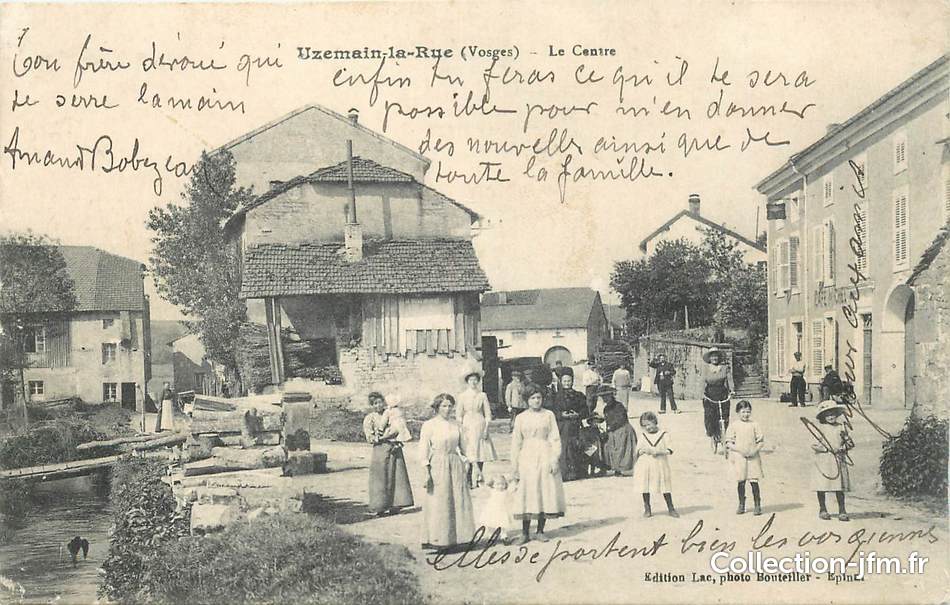 Uzemain-la-Rue (Vosges) - Le Centre
Ton frère dévoué qui
te serre la main
Amand Bobezeau
enfin tu feras ce qu'il te sera
possible pour m'en donner
des nouvelles ainsi que de
toute la famille.
CAFÉ
Bonjour
elles se portent bien les vosgiennes
Collection-jfm.fr
Edition Lac, photo Bouteiller - Epinal